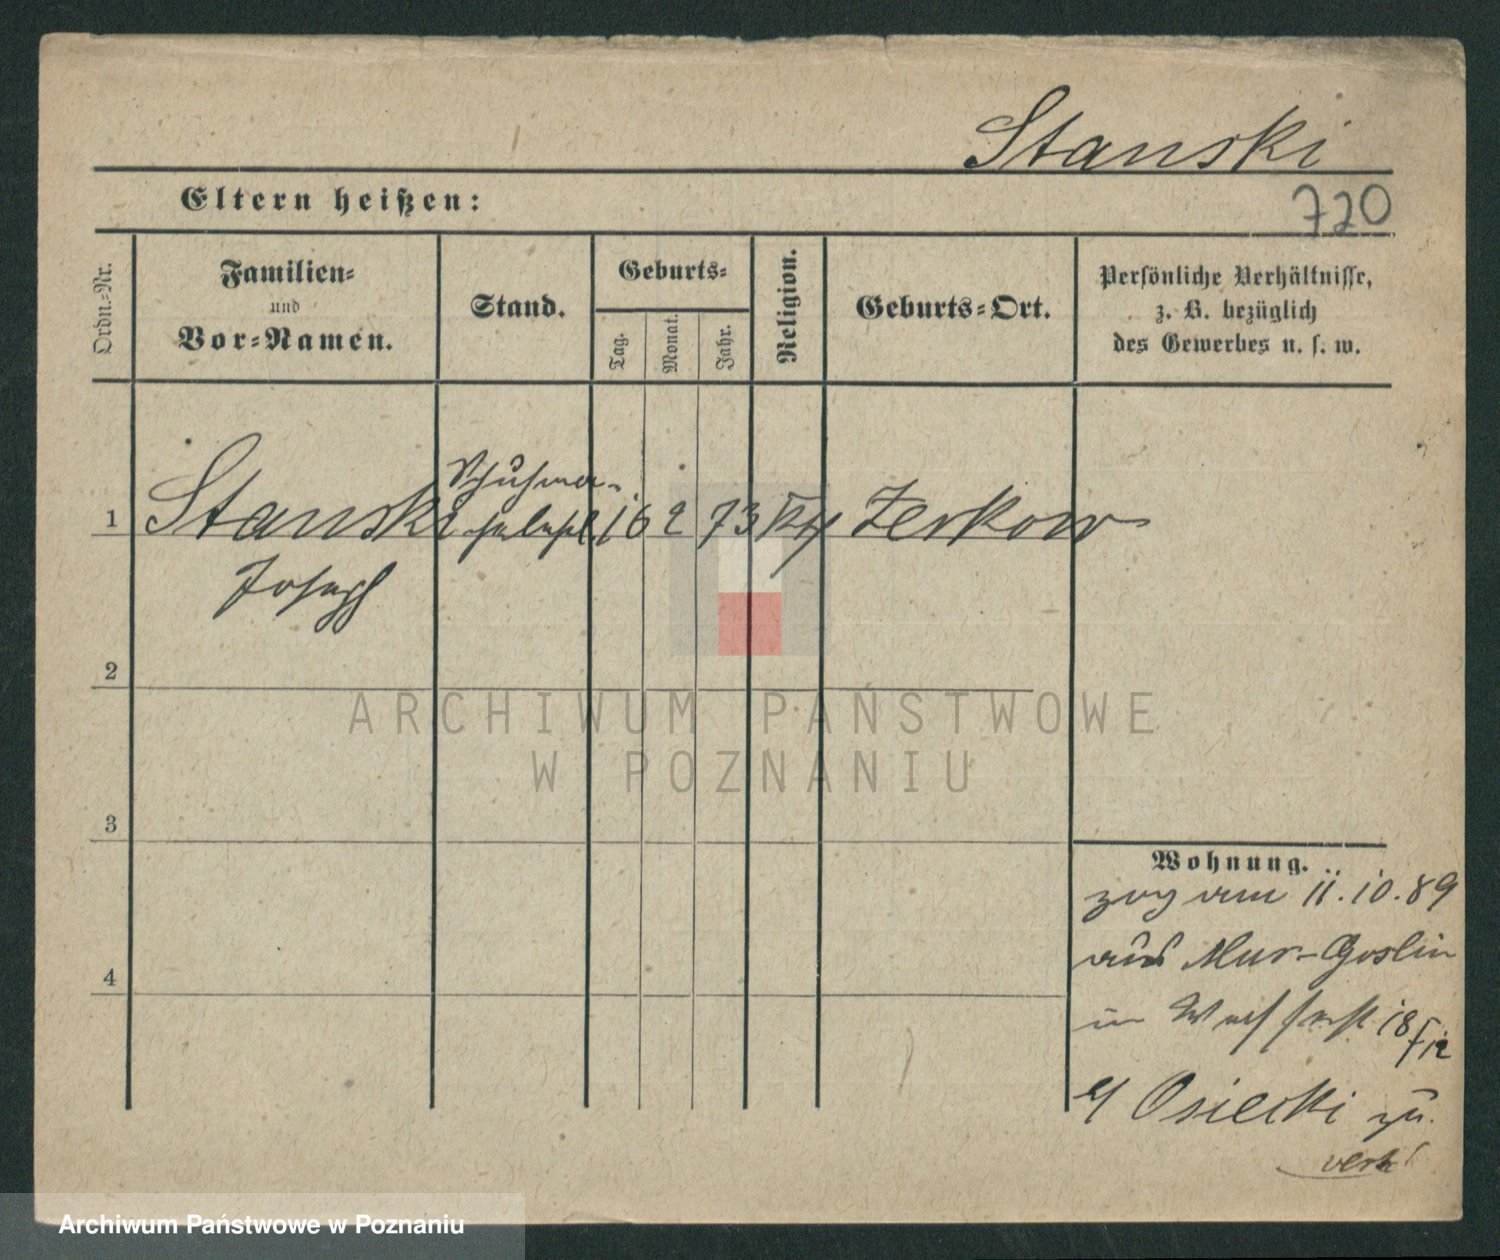 Stanski
Eltern heißen:
720
Ordn.-Nr.
Familien-
und
Vor-Namen.
Stand.
Geburts-
Tag.
Monat.
Jahr.
Religion.
Geburts-Ort.
Persönliche Verhältnisse,
z. B. bezüglich
des Gewerbes u. s. w.
1 Stanski Schuhma- 16 2 73 Kth Zerkow
Joseph
2
3
4
Wohnung.
zog am 11.10.89
aus Mur-Goslin
in 18/12
b/ Osiecki zu.
ARCHIWUM PAŃSTWOWE
W POZNANIU
Archiwum Państwowe w Poznaniu